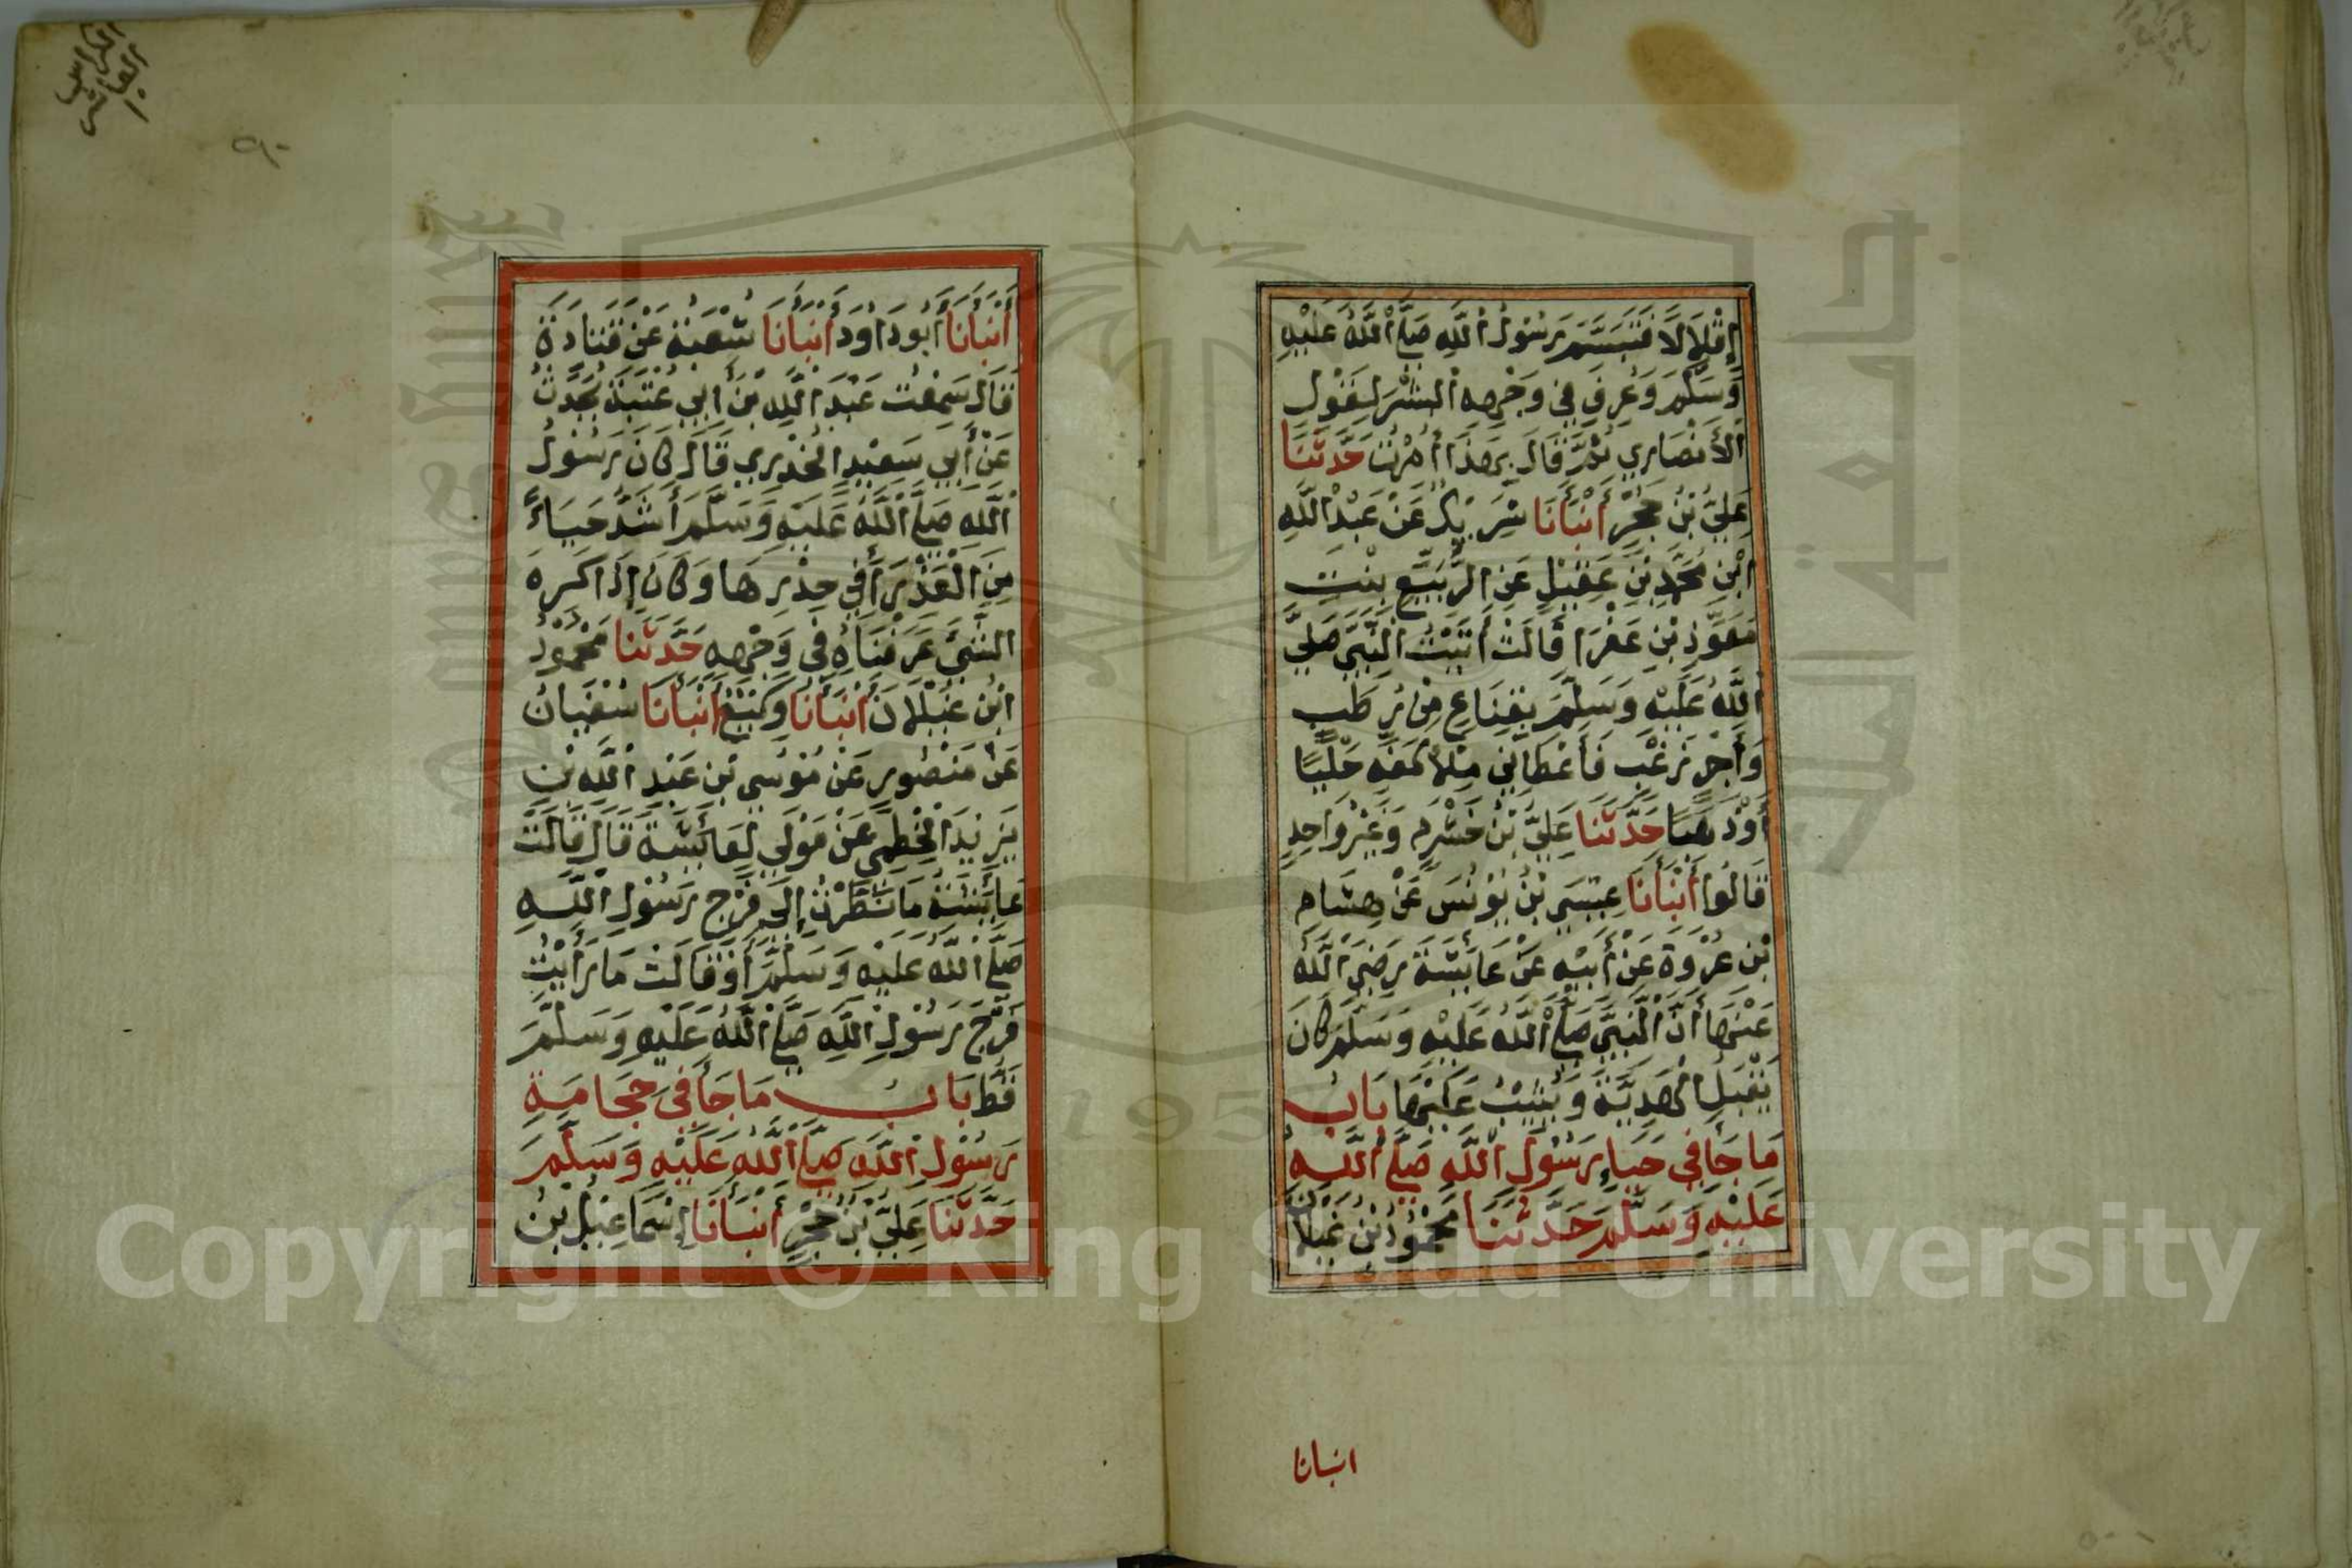 إِقْلَالًا فَتَبَسَّمَ رَسُولُ اللَّهِ صَلَّى اللَّهُ عَلَيْهِ
وَسَلَّمَ وَعُرِفَ فِي وَجْهِهِ الْبِشْرُ لِقَوْلِ
الْأَنْصَارِي ثُمَّ قَالَ بِهَذَا أُمِرْتُ حَدَّثَنَا
عَلِيُّ بْنُ حُجْرٍ أَنْبَأَنَا شَرِيكٌ عَنْ عَبْدِ اللَّهِ
ابْنِ مُحَمَّدِ بْنِ عَقِيلٍ عَنِ الرُّبَيِّعِ بِنْتِ
مُعَوِّذِ بْنِ عَفْرَا قَالَتْ أَتَيْتُ النَّبِيَّ صَلَّى
اللَّهُ عَلَيْهِ وَسَلَّمَ بِقِنَاعٍ مِنْ رُطَبٍ
وَأَجْرٍ زُغْبٍ فَأَعْطَانِي مِلْأَ كَفِّهِ حُلِيًّا
أَوْ ذَهَبًا حَدَّثَنَا عَلِيُّ بْنُ خَشْرَمٍ وَغَيْرُ وَاحِدٍ
قَالُوا أَنْبَأَنَا عِيسَى بْنُ يُونُسَ عَنْ هِشَامِ
بْنِ عُرْوَةَ عَنْ أَبِيْهِ عَنْ عَايِشَةَ رَضِيَ اللَّهُ
عَنْهَا أَنَّ النَّبِيَّ صَلَّى اللَّهُ عَلَيْهِ وَسَلَّمَ كَانَ
يَقْبَلُ الْهَدِيَّةَ وَيُثِيْبُ عَلَيْهَا بَابُ
مَا جَا فِي حَيَاءِ رَسُولِ اللَّهِ صَلَّى اللَّهُ
عَلَيْهِ وَسَلَّمَ حَدَّثَنَا مَحْمُوْدُ بْنُ غَيْلَانَ
انبانا
٩٠
أَنْبَأَنَا أَبُو دَاوُدَ أَنْبَأَنَا شُعْبَةُ عَنْ قَتَادَةَ
قَالَ سَمِعْتُ عَبْدَ اللَّهِ بْنَ أَبِي عُتْبَةَ يُحَدِّثُ
عَنْ أَبِي سَعِيْدٍ الْخُدْرِيِ قَالَ كَانَ رَسُولُ
اللَّهِ صَلَّى اللَّهُ عَلَيْهِ وَسَلَّمَ أَشَدَّ حَيَاءً
مِنَ الْعَذْرَاءِ فِي خِدْرِهَا وَكَانَ إِذَا كَرِهَ
الشَّيْءَ عَرَفْنَاهُ فِي وَجْهِهِ حَدَّثَنَا مَحْمُوْدُ
ابْنُ غَيْلَانَ أَنْبَأَنَا وَكِيْعٌ أَنْبَأَنَا سُفْيَانُ
عَنْ مَنْصُورٍ عَنْ مُوْسَى بْنِ عَبْدِ اللَّهِ بْنِ
يَزِيْدَ الْخَطْمِيِّ عَنْ مَوْلًى لِعَايِشَةَ قَالَ قَالَتْ
عَايِشَةُ مَا نَظَرْتُ إِلَى فَرْجِ رَسُوْلِ اللَّهِ
صَلَّى اللَّهُ عَلَيْهِ وَسَلَّمَ أَوْ قَالَتْ مَا رَأَيْتُ
فَرْجَ رَسُوْلِ اللَّهِ صَلَّى اللَّهُ عَلَيْهِ وَسَلَّمَ
قَطُّ بَابُ مَا جَا فِي حِجَامَةِ
رَسُوْلِ اللَّهِ صَلَّى اللَّهُ عَلَيْهِ وَسَلَّمَ
حَدَّثَنَا عَلِيُّ بْنُ حُجْرٍ أَنْبَأَنَا إِسْمَاعِيْلُ بْنُ
جامعة الملك سعود
1957
Copyright © King Saud University